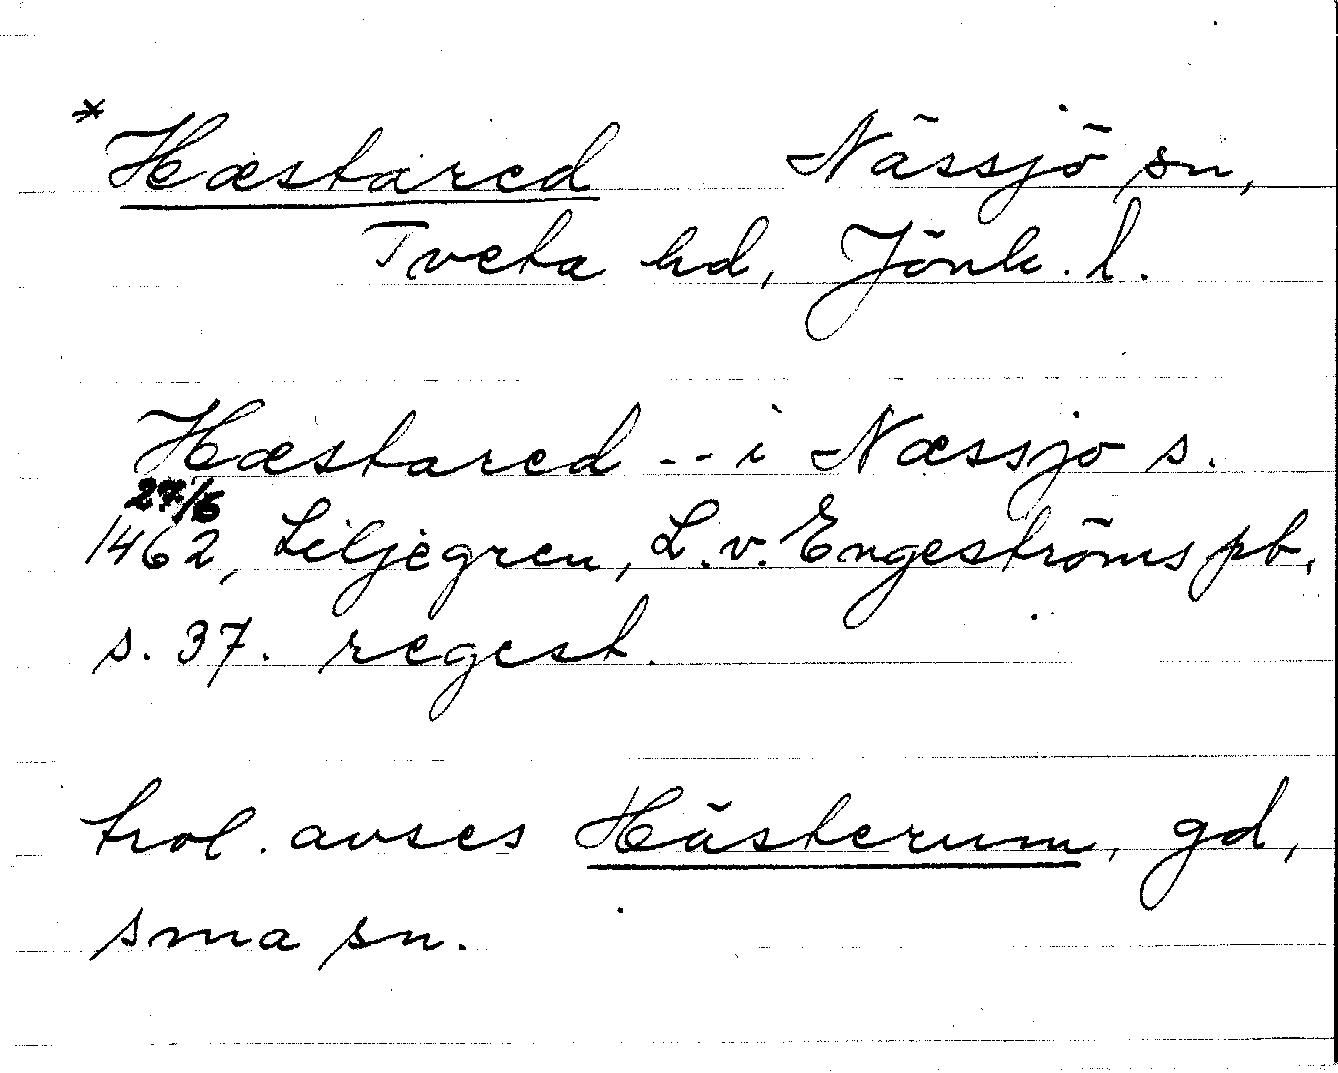 * Hæstared Nässjö sn,
Tveta hd, Jönk. l.
Hæstared -- i Næssjo s.
27/6
1462, Liljegren, L. v. Engeströms pb,
s. 37. regest.
trol. avses Hästerum, gd,
sma sn.